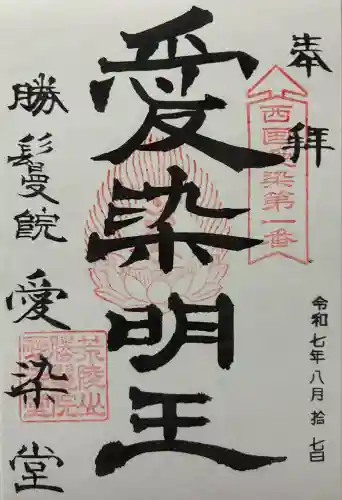 奉拝
西国愛染第一番
令和七年八月拾七日
愛染明王
勝鬘院愛染堂